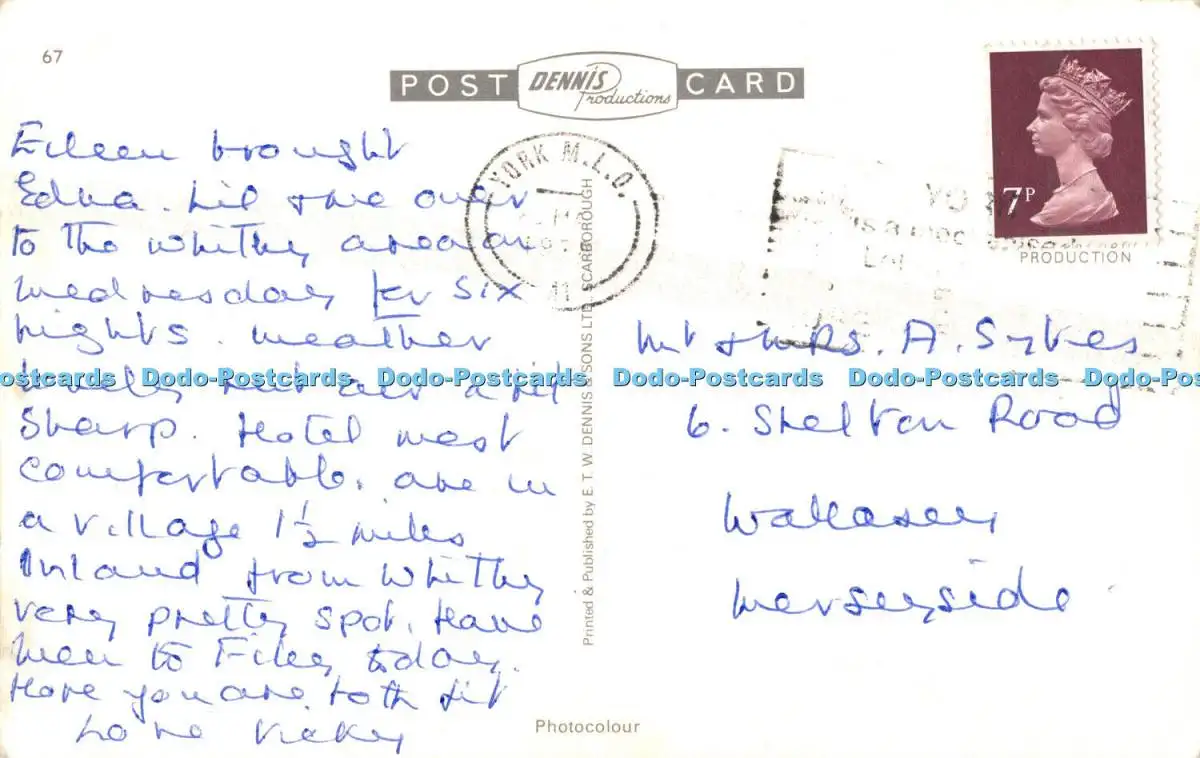 67
POST DENNIS Productions CARD
Eileen brought
Edna. Lil & me over
to the Whitby area on
Wednesday for six
nights. Weather
lovely but air a bit
Sharp. Hotel most
comfortable. are in
a village 1½ miles
Inland from Whitby
very pretty spot. Have
been to Filey today.
Hope you are both fit
Love Vicky
YORK M.L.O.
Printed & Published by E. T. W. DENNIS & SONS LTD. SCARBOROUGH
7P
PRODUCTION
Mr & MRS. A. Sykes
6. Shelton Road
Wallasey
Merseyside
Dodo-Postcards Dodo-Postcards Dodo-Postcards Dodo-Postcards
Photocolour